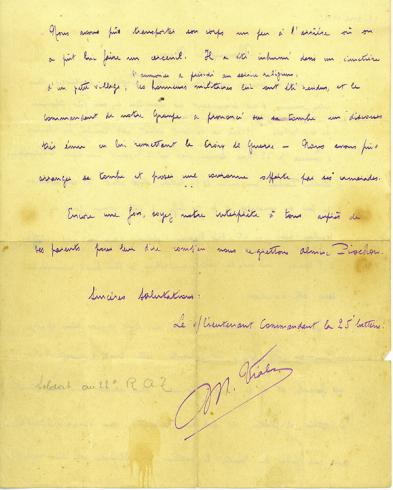 Nous avons pu transporter son corps un peu à l'arrière où on
a pu lui faire un cercueil. Il a été inhumé dans un cimetière
l'aumônier a présidé au service religieux
d'un petit village, les honneurs militaires lui ont été rendus, et le
commandant de notre Groupe a prononcé sur sa tombe un discours
très émue en lui remettant la Croix de Guerre – Nous avons pu
arranger sa tombe et poser une couronne offerte par ses camarades.
Encore une fois, soyez notre interprète à tous auprès de
ses parents pour leur dire combien nous regrettons
Sincères Salutations.
Le s/lieutenant Commandant la 25e batterie
M.
Soldat au